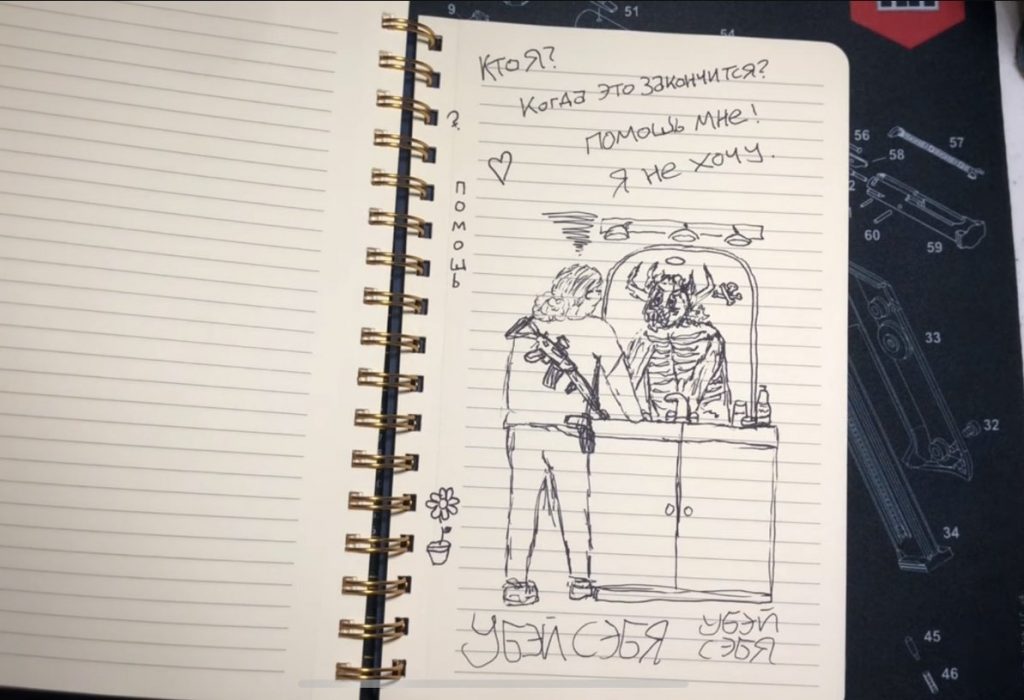 9
51
54
Кто я?
Когда это закончится?
помошь мне!
я не хочу.
?
помошь
56
57
58
2
60
59
33
32
34
УБЭЙ СЭБЯ
УБЭЙ
СЭБЯ
45
46